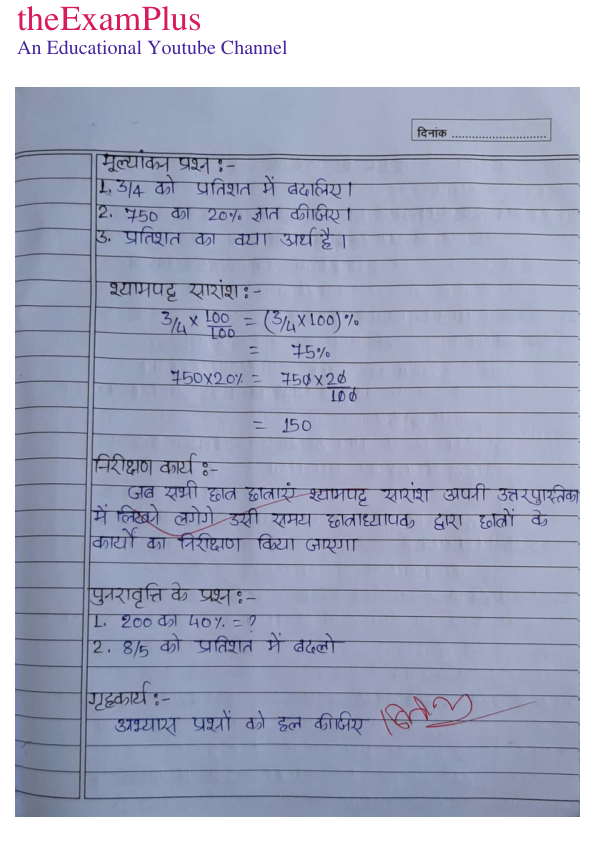 theExamPlus
An Educational Youtube Channel
दिनांक ............................
मूल्यांकन प्रश्न :-
1. 3/4 को प्रतिशत में बदलिए।
2. 750 का 20% ज्ञात कीजिए।
3. प्रतिशत का क्या अर्थ है।
श्यामपट्ट सारांश :-
3/4 × 100/100 = (3/4×100)%
= 75%
750×20% = 750×20/100
= 150
निरीक्षण कार्य :-
जब सभी छात्र छात्राएं श्यामपट्ट सारांश अपनी उत्तरपुस्तिका
में लिखने लगेगे उसी समय छात्राध्यापक द्वारा छात्रों के
कार्यों का निरीक्षण किया जाएगा
पुनरावृत्ति के प्रश्न :-
1. 200 का 40% = ?
2. 8/5 को प्रतिशत में बदलो
गृहकार्य :-
अभ्यास प्रश्नों को हल कीजिए